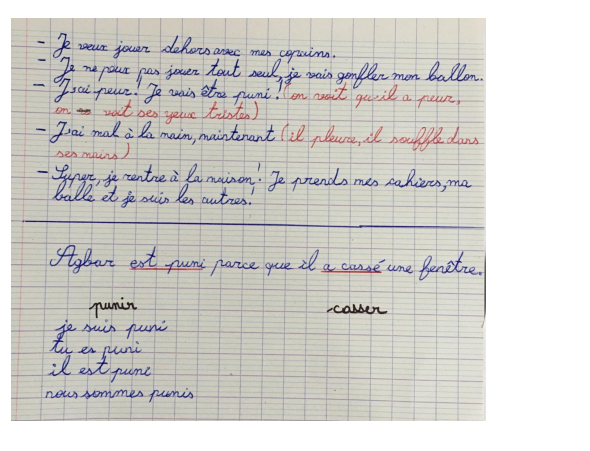 - Je veux jouer dehors avec mes copains.
- Je ne peux pas jouer tout seul, je vais gonfler mon ballon.
- J'ai peur! Je vais être puni! (on voit qu'il a peur,
on voit ses yeux tristes)
- J'ai mal à la main, maintenant (il pleure, il souffle dans
ses mains)
- Super, je rentre à la maison! Je prends mes cahiers, ma
balle et je suis les autres!
Agbar est puni parce que il a cassé une fenêtre.
punir casser
je suis puni
tu es puni
il est puni
nous sommes punis